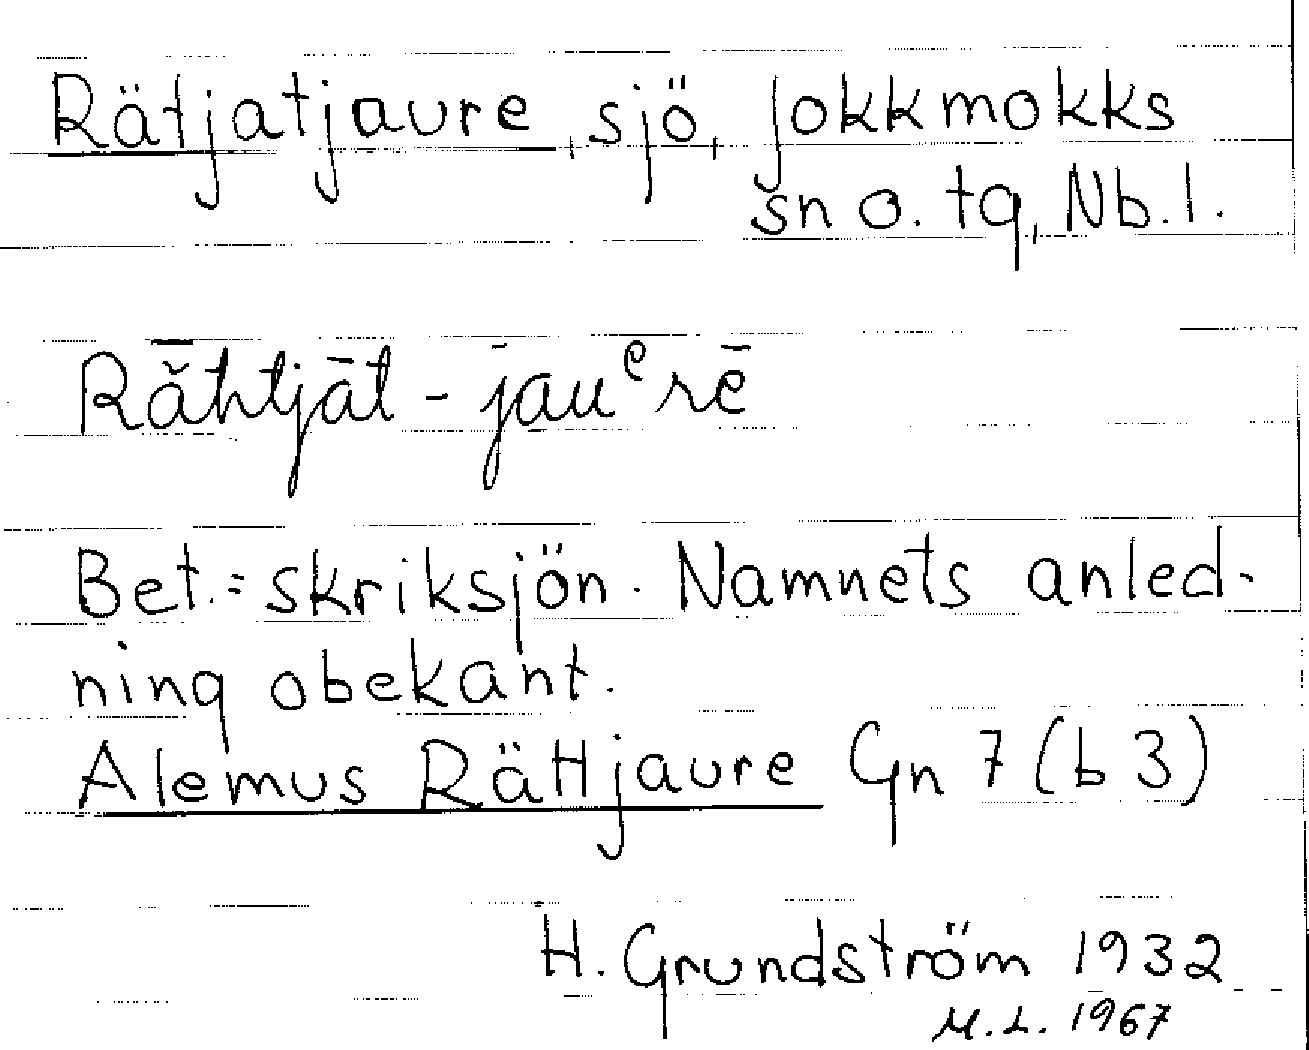 Rätjatjaure, sjö, Jokkmokks
sn o. tg, Nb. l.
Rǟ̆htjāt - jauᵉrē
Bet. = skriksjön. Namnets anled-
ning obekant.
Alemus Rättjaure Gn 7 (b 3)
H. Grundström 1932
M. L. 1967